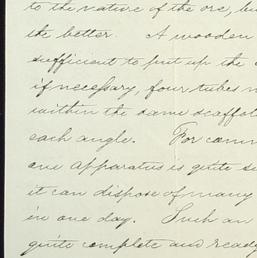 to the nature of the ore, bu
the better. A wooden
sufficient to put up the
if necessary, four tubes m
within the same scaffol
each angle. For comm
one apparatus is quite su
it can dispose of many
in one day. Such an
quite complete and ready